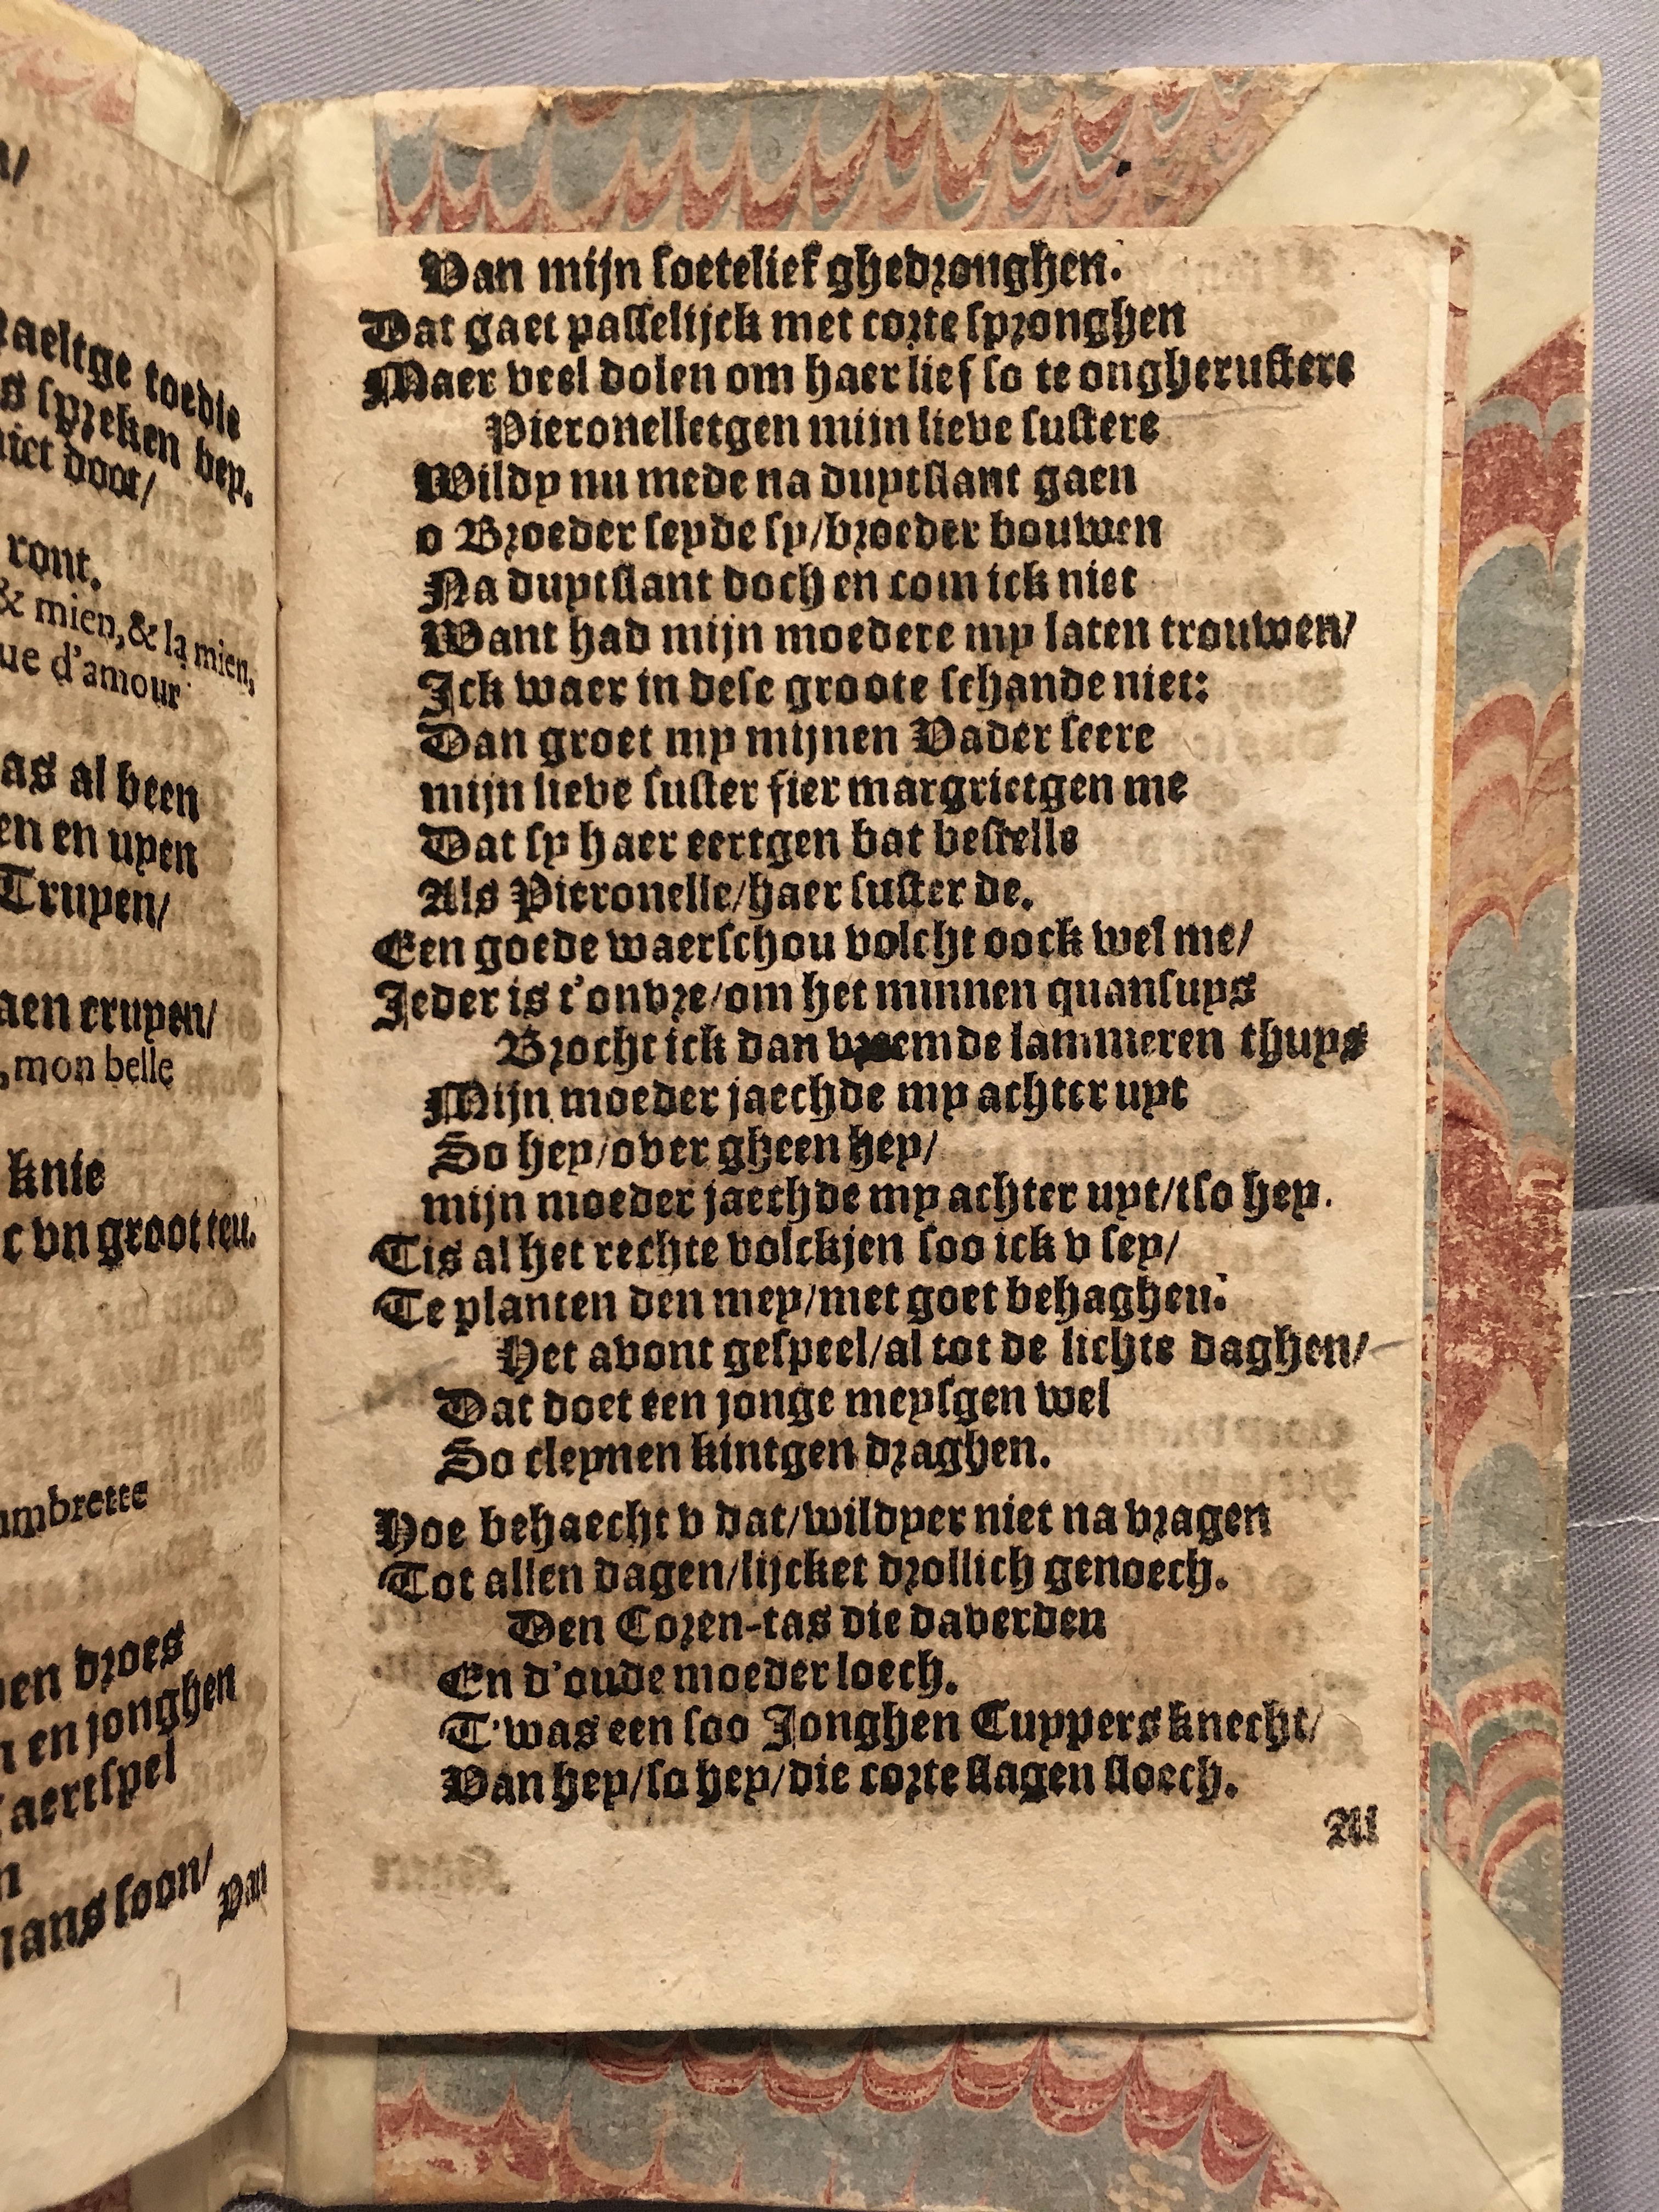 n/
raeltge toedie
s spreken bey.
niet doot/
ront.
& mien, & la mien,
ue d'amour
as al been
en en uyen
Truyen/
aen cruyen/
,mon belle
knie
c vn groot
ambrette
en droes
n en jonghen
aertspel
n
mans soon/
Van
Van mijn soetelief ghedronghen.
Dat gaet passelijck met corte spronghen
Maer veel dolen om haer lief so te ongherustere
Pieronelletgen mijn lieve sustere
Wildy nu mede na duytslant gaen
o Broeder seyde sy/broeder bouwen
Na duytslant doch en com ick niet
Want had mijn moedere my laten trouwen/
Ick waer in dese groote schande niet:
Dan groet my mijnen Vader seere
mijn lieve suster fier margrietgen me
Dat sy haer eertgen bat bestelle
Als Pieronelle/haer suster de.
Een goede waerschou volcht oock wel me/
Jeder is t'onvre/om het minnen quansuys
Brocht ick dan vreemde lammeren thuys
Mijn moeder jaechde my achter uyt
So hey/over gheen hey/
mijn moeder jaechde my achter uyt/tso hey.
Tis al het rechte volckjen soo ick v sey/
Te planten den mey/met goet behaghen:
Het avont gespeel/al tot de lichte daghen/
Dat doet een jonge meysgen wel
So cleynen kintgen draghen.
Hoe behaecht v dat/wildyer niet na vragen
Tot allen dagen/lijcket drollich genoech.
Den Coren-tas die daverden
En d'oude moeder loech.
T'was een soo Jonghen Cuypers knecht/
Van hey/so hey/die corte slagen sloech.
Al